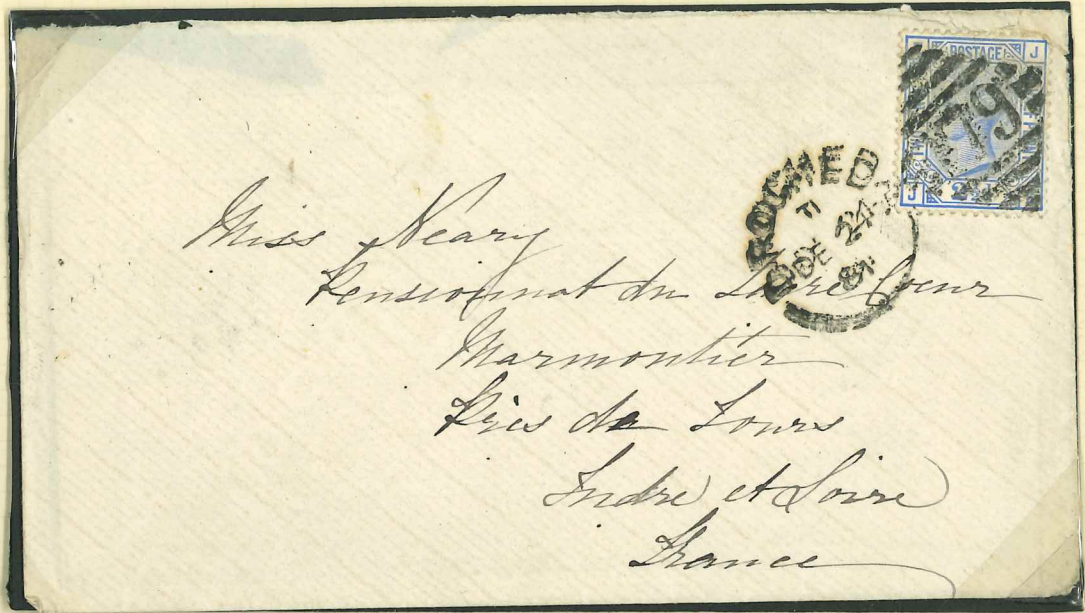 POSTAGE
J
79
J
DROGHEDA
DE 24
81
Miss Neary
Pensionnat du Sacré Coeur
Marmontier
Près de Tours
Indre et Loire
France